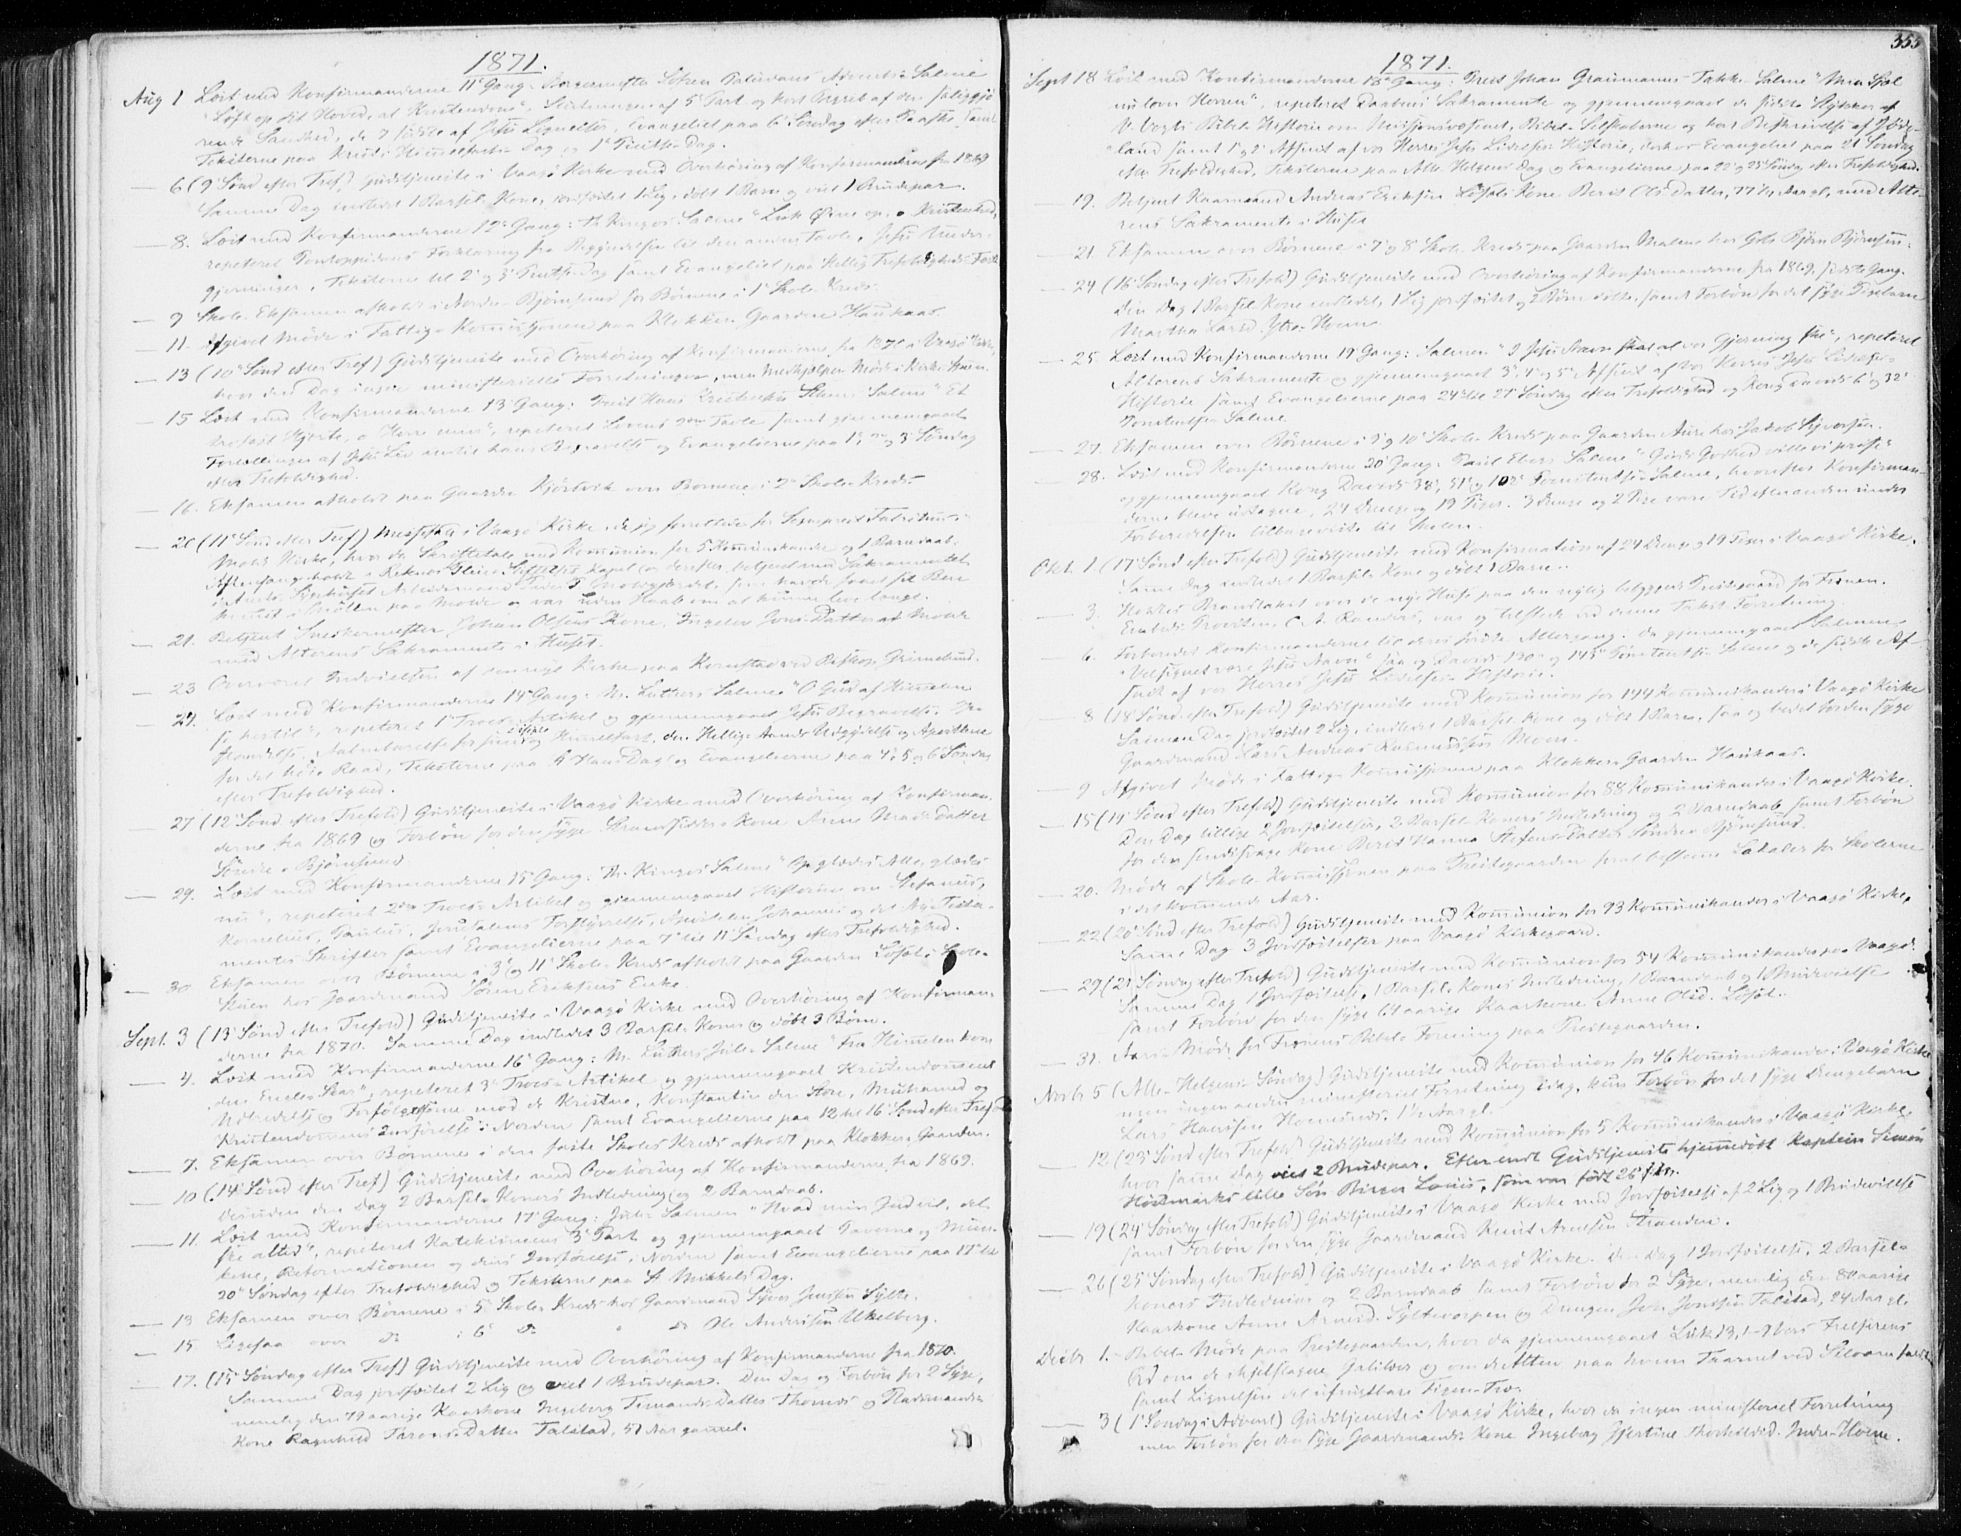 1871.
Aug 1 Læst med Konfirmanderne 11e Gang: Borgermester Søren Advents-Salme
"Løft op dit Hoved, al Kristendom", Slutningen af 5te Part og kort Begreb af den saliggjø-
rende Sandhed, de 7 sidste af Jesu Lignelser, Evangeliet paa 6e Søndag efter Paaske samt
Teksterne paa Kristi Himmelfarts-Dag og 1e Pintse-Dag.
— 6 (9e Sønd efter Tref) Gudstjeneste i Vaagø Kirke med Overhøring af Konfirmanderne fra 1869
Samme Dag indledt 1 Barsel-Kone, jordfæstet 1 Lig, døbt 1 Barn og viet 1 Brudepar.
— 8. Læst med Konfirmanderne 12e Gang: Th. Kingos Salme "Luk Øine op, o Kristenhed,
repeteret Pontoppidans Forklaring fra Begyndelsen til den anden Tavle, Jesu Under-
gjerninger, Teksterne til 2e og 3e Pintse-Dag samt Evangeliet paa Hellig Trefoldigheds-Fest
— 9 Skole-Eksamen afholdt i Nordre Bjørnsund for Børnene i 1e Skole-Kreds.
— 11. Afgivet Møde i Fattig-Komisjonen paa Klokker-Gaarden Haukaas.
— 13 (10e Sønd efter Tref) Gudstjeneste med Overhøring af Konfirmanderne fra 1870 i Vaagø Kirke,
hvor den Dag ingen ministerielle Forretninger, men Medhjælper Møde i Kirke
— 15 Læst med Konfirmanderne 13e Gang: Salme "Et
trofast Hjerte, o Herre min", repeteret Lovens Tavle samt gjennemgaaet
Fortællinger af Jesu Liv indtil hans Begravelse og Evangelierne paa 1e, 2e og 3e Søndag
efter Trefoldighed.
— 16. Eksamen afholdt paa Gaarden Kjørsvik over Børnene i 2e Skole-Kreds
— 20 (11e Sønd efter Tref) Messefald i Vaagø Kirke, da jeg forrettede for Sogneprest
Molde Kirke, hvor da Skriftetale med Kommunion for 5 Kommunikanter og 1 Barnedaab.
Aftensang holdt i Reknes Pleie-Stiftelses Kapel og derefter betjent med Sakramentet
paa Molde og var uden Haab om at kunne leve længe.
— 21. Betjent Snedkermester Johan Olsens Kone, Ingeleu Jons-Datter af Molde
med Alterens Sakramente i Huset.
— 23 Overværet Indvielsen af den nye Kirke paa Kornstad ved Biskop Grimelund.
— 24. Læst med Konfirmanderne 14e Gang: M. Luthers Salme "O Gud af Himmelen
", repeteret 1e Troes-Artikel og gjennemgaaet Jesu Begravelse, Op-
standelse, Aabenbarelse for sine Disiple og Himmelfart, den Hellig-Aands Udgydelse og Apostlene
for det høie Raad, Teksterne paa St Hans Dag og Evangelierne paa 4e, 5e og 6e Søndag
efter Trefoldighed.
— 27 (12e Sønd efter Trefold) Gudstjeneste i Vaagø Kirke med Overhøring af Konfirman-
derne fra 1869 og Forbøn for den syge Strandsidder-Kone Anne Mads-Datter
Søndre-Bjørnsund
— 29. Læst med Konfirmanderne 15e Gang: Th. Kingos Salme "Op glædes Alle, glædes
nu", repeteret 2den Troes-Artikel og gjennemgaaet Historien om Stefanus,
Kornelius, Paulus, Jerusalems Forstyrrelse, Apostelen Johannes og det Nye Testa-
mentes Skrifter samt Evangelierne paa 7e til 11e Søndag efter Trefoldighed.
— 30 Eksamen over Børnene i 3e og 11e Skole-Kreds afholdt paa Gaarden Løset i Skole-
Stuen hos Gaardmand Søren Eriksens Enke.
Sept. 3 (13e Sønd efter Trefold) Gudstjeneste i Vaagø Kirke med Overhøring af Konfirman-
derne fra 1870. Samme Dag indledt 3 Barsel-Koner og døbt 3 Børn.
— 4. Læst med Konfirmanderne 16e Gang: M. Luthers Jule-Salme "Fra Himmelen kom
den Engle-Skar", repeteret 3e Troes-Artikel og gjennemgaaet Kristendommens
Udbredelse og Forfølgelserne mod de Kristne, Konstantin den Store, Muhamed og
Kristendommens Indførelse i Norden samt Evangelierne paa 12e til 16e Sønd efter Trefold
— 7. Eksamen over Børnene i den faste Skoles Kreds afholdt paa Klokker-Gaarden.
— 10 (14e Sønd efter Tref) Gudstjeneste med Overhøring af Konfirmanderne fra 1869.
desuden den Dag 2 Barsel-Koners Indledning og 2 Barnedaab.
— 11. Læst med Konfirmanderne 17e Gang: Salmen "Hvad min Gud vil, det
ske altid", repeteret Katekismens 3e Part og gjennemgaaet Paverne, Mun-
kene, Reformationen og dens Indførelse i Norden samt Evangelierne paa 17e til
20e Søndag efter Trefoldighed og Teksterne paa St Mikkels Dag.
— 13 Eksamen over Børnene i 5e Skole-Kreds hos Gaardmand Syver Jensen Sylte.
— 15 Ligesaa over do i 6e do do Ole Andersen Ukelberg.
— 17. (15e Søndag efter Tref) Gudstjeneste med Overhøring af Konfirmanderne fra 1870.
Samme Dag jordfæstet 2 Lig og viet 1 Brudepar. Den Dag og Forbøn for 2 Syge,
nemlig den 79aarige Kaarkone Ingeborg Datter Thornes og Pladsmands
Kone Ragnhild Datter Talstad, 57 Aar gammel.
355
1871.
Sept 18 Læst med Konfirmanderne 18e Gang: Prest Johan Graumanns Takke-Salme "Min Sjæl
nu lover Herren", repeteret Daabens Sakramente og gjennemgaaet de sidste Stykker af
V. Vogts Bibel-Historie om Missionsvæsenet, Bibel-Selskaberne og kort Beskrivelse af Jøde-
land samt 1e og 2e Afsnit af vor Herres Jesu Lidelses-Historie, Evangeliet paa 21e Søndag
efter Trefoldighed, Teksterne paa Alle-Helgens Dag og Evangelierne paa 22e og 23e Søndag efter Trefoldighed.
— 19. Betjent Kaarmand Andreas Eriksen Løsets Kone Berit Ols-Datter, 77 Aar gl., med Alte-
rens Sakramente i Huset
— 21 Eksamen over Børnene i 7e og 8e Skole-Kreds paa Gaarden Malme hos Gbr Bjørn Bjørnsen.
— 24 (16e Søndag efter Trefold) Gudstjeneste med Overhøring af Konfirmanderne fra 1869, sidste Gang.
den Dag 1 Barsel-Kone indledt, 1 Lig jordfæstet og 2 Børn døbte, samt Forbøn for det syge Pigebarn
Martha Larsd. Ytre-Hoem
— 25 Læst med Konfirmanderne 19e Gang: Salmen "I Jesu Navn skal al vor Gjerning ske", repeteret
Alterens Sakramente og gjennemgaaet 3e, 4e og 5e Afsnit af vor Herres Jesu Lidelses-
Historie samt Evangelierne paa 24e til 27e Søndag efter Trefoldighed og Kong Davids 6e og 32e
Ponitentse-Salme
— 27. Eksamen over Børnene i 9e og 10e Skole-Kreds paa Gaarden Aure hos Jakob Syversen.
— 28. Læst med Konfirmanderne 20e Gang: Paul Ebers Salme "Guds Godhed ville vi prise"
og gjennemgaaet Kong Davids 38e, 51e og 102e Ponitentse-Salme, hvorefter Konfirman-
derne bleve udtagne, 24 Drenge og 19 Piger. 3 Drenge og 2 Piger vare under
Forberedelsen tilbageviste til Skolen.
Okt. 1. (17e Sønd efter Trefold) Gudstjeneste med Konfirmation af 24 Drenge og 19 Piger i Vaagø Kirke.
Samme Dag indledet 1 Barsel-Kone og døbt 1 Barn.
— 3. Holdtes Brandtakst over de nye Huse paa den nylig bebyggede Prestegaard for Frænen.
Embeds-Provsten, C. A. Randers, var og tilstede ved denne Takst-Forretning.
— 6. Forberedet Konfirmanderne til deres første Altergang. Da gjennemgaaet Salmen
"Velsignet være Jesu Navn" saa og Davids 130e og 143e Ponitentse-Salme og de sidste Af-
snit af vor Herres Jesu Lidelses-Historie.
— 8 (18e Sønd efter Trefold) Gudstjeneste med Kommunion for 194 Kommunikanter i Vaagø Kirke
Samme Dag jordfæstet 2 Lig, indledet 1 Barsel-Kone og døbt 1 Barn, saa og bedet for den syge
Gaardmand Lars Andreas Rasmussen Moen.
— 9 Afgivet Møde i Fattig-Komissjonen paa Klokker-Gaarden Haukaas.
— 15 (19e Sønd efter Trefold) Gudstjeneste med Kommunion for 88 Kommunikanter i Vaagø Kirke.
Den Dag tillige 2 Jordfæstelser, 2 Barsel-Koners Indledning og 2 Barnedaab samt Forbøn
for den sindssvage Kone Berit Hanna Stefens-Datter Søndre Bjørnsund.
— 20. Møde af Skole-Komissjonen paa Prestegaarden samt bestemt Lokaler for Skolerne
i det kommende Aar.
— 22 (20e Sønd efter Trefold) Gudstjeneste med Kommunion for 93 Kommunikanter i Vaagø Kirke.
Samme Dag 3 Jordfæstelser paa Vaagø Kirkegaard.
— 29 (21e Søndag efter Trefold) Gudstjeneste med Kommunion for 54 Kommunikanter paa Vaagø.
Samme Dag 1 Jordfæstelse, 1 Barsel-Kones Indledning, 1 Barnedaab og 1 Brudevielse
samt Forbøn for den syge aarige Kaarkone Anne Olsd. Løset.
— 31. Aars-Møde for Frænens Bibel-Forening paa Prestegaarden.
Novbr 5 (Alle-Helgens Søndag) Gudstjeneste med Kommunion for 46 Kommunikanter i Vaagø Kirke
men ingen anden ministeriel Forretning idag, kun Forbøn for det syge Drengebarn
Lars Hansen Hoemsnes, 1½ Aar gl.
— 12 (23e Sønd efter Trefold) Gudstjeneste med Kommunion for 5 Kommunikanter i Vaagø Kirke,
hvor samme Dag viet 2 Brudepar. Efter endt Gudstjeneste hjemmedøbt Kaptein Simon
Hødmarks lille Søn Birger Louis, som var født 26 f. M.
— 19 (24e Søndag efter Trefold) Gudstjeneste i Vaagø Kirke med Jordfæstelse af 2 Lig og 1 Brudevielse
samt Forbøn for den syge Gaardmand Knut Arnesen Stranden.
— 26 (25e Søndag efter Trefold) Gudstjeneste i Vaagø Kirke. Den Dag 1 Jordfæstelse, 2 Barsel-
koners Indledning og 2 Barnedaab samt Forbøn for 2 Syge, nemlig den 80aarige
Kaarkone Anne Syltevorpen og Drengen Jon Jonssen Talstad, 24 Aar gl.
Decbr 1. Bibel-Møde paa Prestegaarden, hvor da gjennemgaaet Luk. 13, 1-9 Vers Frelserens
Ord om de ihjelslagne Galilæer og om de Atten paa hvem Taarnet ved Siloam faldt
samt Lignelsen det ufrugtbare Figen-Træ.
— 3 (1e Søndag i Advent) Gudstjeneste i Vaagø Kirke, hvor da ingen ministeriel Forretning
men Forbøn for den syge Gaardmands-Kone Ingeborg Gjertine Thorkildsd. Indre-Hoem.